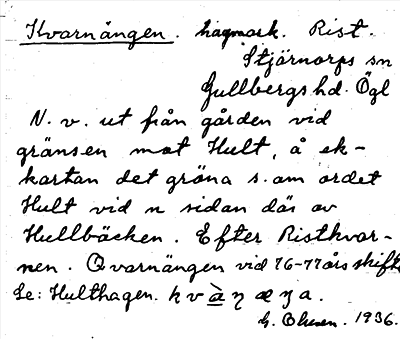 Kvarnängen. hagmark. Rist.
Stjärnorps sn
Gullbergs hd. Ögl
N. v. ut från gården vid
gränsen mot Hult, å ek-
kartan det gröna s. om ordet
Hult vid n sidan där av
Hultbäcken. Efter Ristkvar-
nen. Qvarnängen vid 76-77 års skifte
Se: Hulthagen. kvàŋæŋa.
G. 1936.